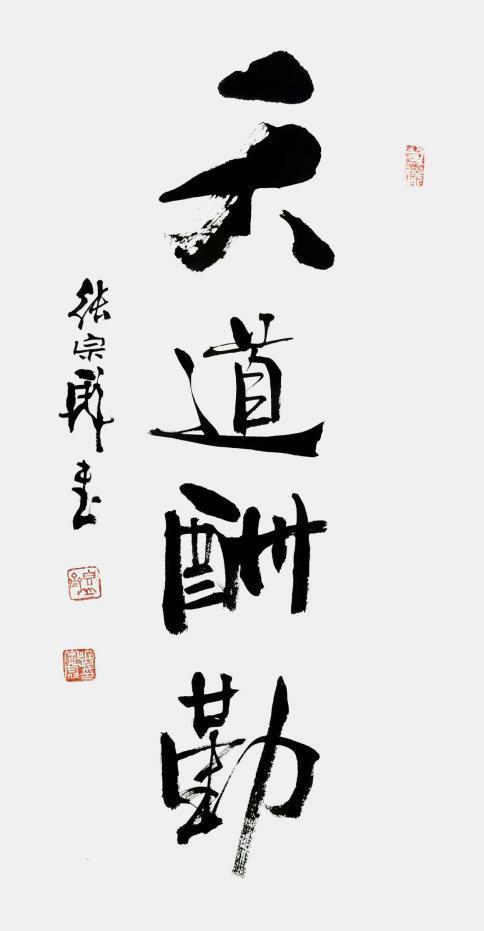 天道酬勤
张宗彪书